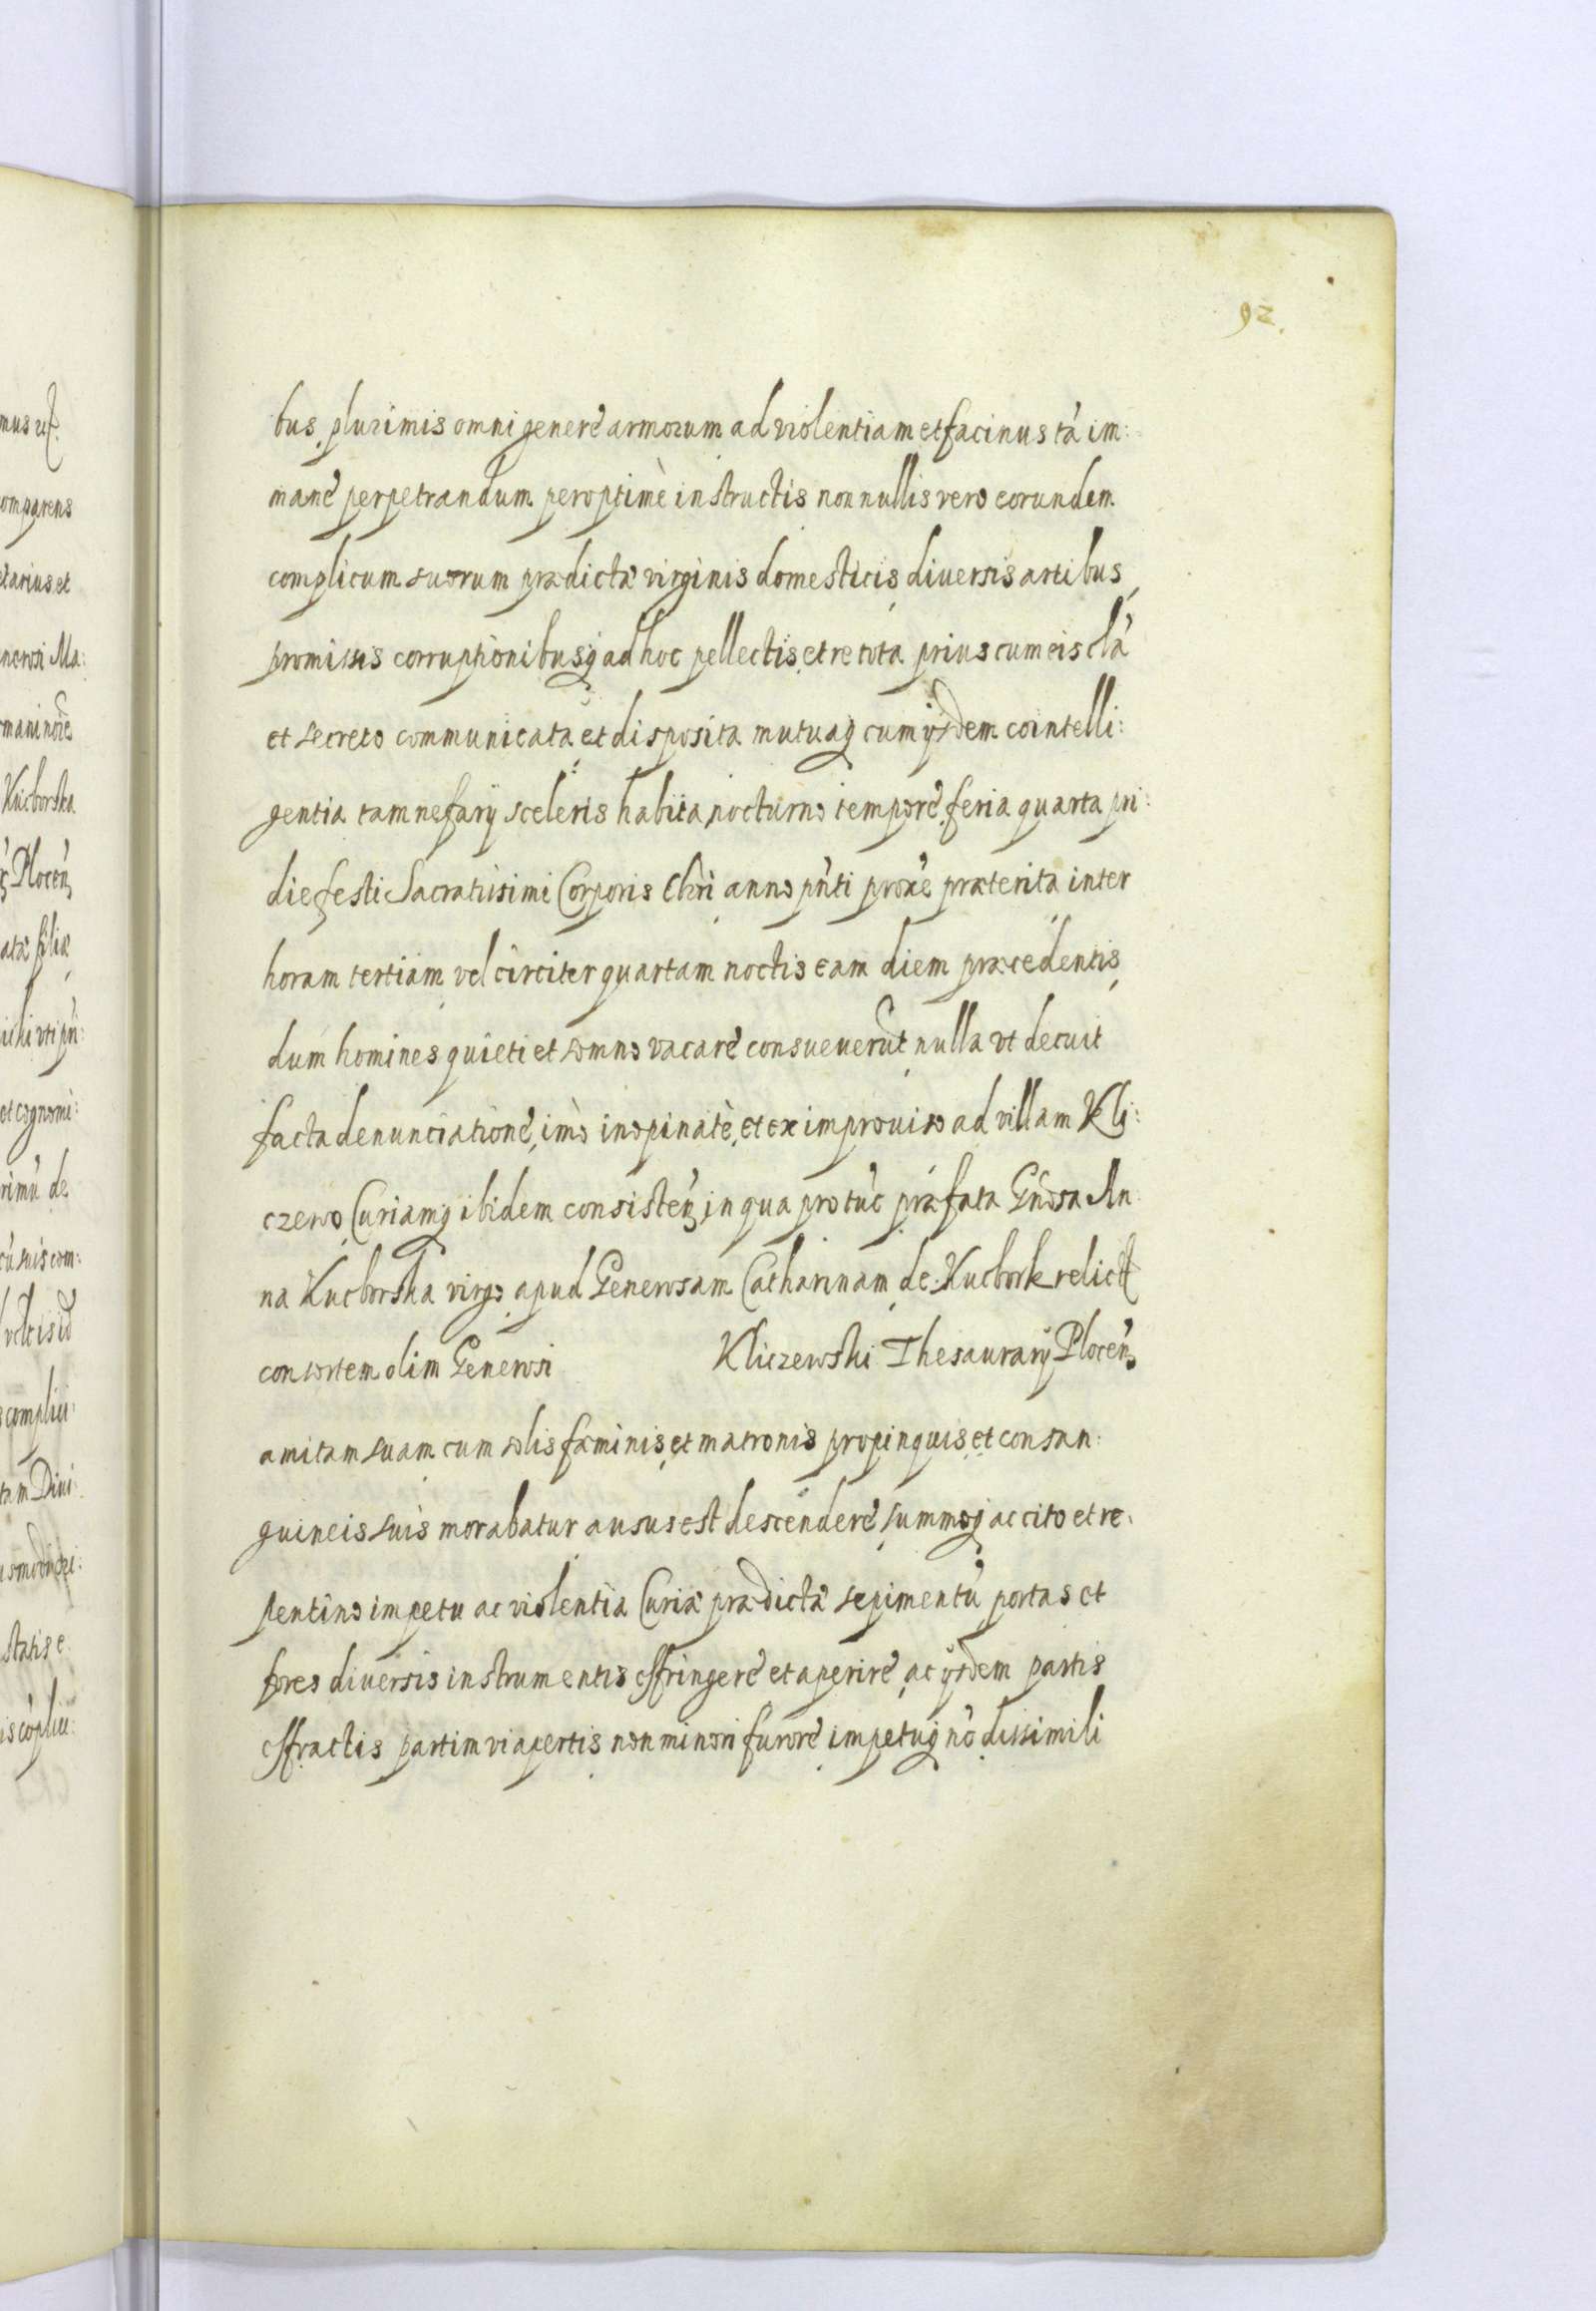 92.
bus plurimis omni genere armorum ad violentiam et facinus tã im:
mane perpetrandum peroptimè instructis nonnullis vero eorundem
complicum suorum prædictæ virginis domesticis diuersis artibus,
promissis corruptionibusq̃ ad hoc pellectis, et re tota prius cum eis clã
et secreto communicata, et disposita mutuaq̃ cum ijsdem cointelli:
gentia tam nefarij sceleris habita, nocturno tempore, feria quarta pri:
die festi Sacratissimi Corporis Chri anno pñti proxe præterita inter
horam tertiam vel circiter quartam noctis eam diem præcedentis,
dum homines quieti et somno vacare consueuerũt, nulla vt decuit
facta denunciatione, imò inopinatè, et ex improuiso ad villam Kli:
czewo, Curiamq̃ ibidem consisteñ, in qua pro tũc præfata Gñosa An:
na Kucborska virgo apud Generosam Catharinam de Kucbork relict
consortem olim Generosi Kliczewski Thesaurarij Ploceñ
amitam suam cum solis fæminis, et matronis propinquis, et consan:
guineis suis morabatur ausus est descendere, summoq̃ ac cito et re:
pentino impetu ac violentia Curiæ prædictæ sepimentũ portas et
fores diuersis instrumentis effringere et aperire, ac ijsdem partis
effractis partim vi apertis non minori furore impetuq̃ nõ dissimili
mus
omparens
etarius et
nerosi Ma:
mani noie
Kucborska
Ploceñ
atæ filiæ
et cognomi:
rimũ de
cũ suis com:
complici:
tam Diui:
statis e
is cõplici: